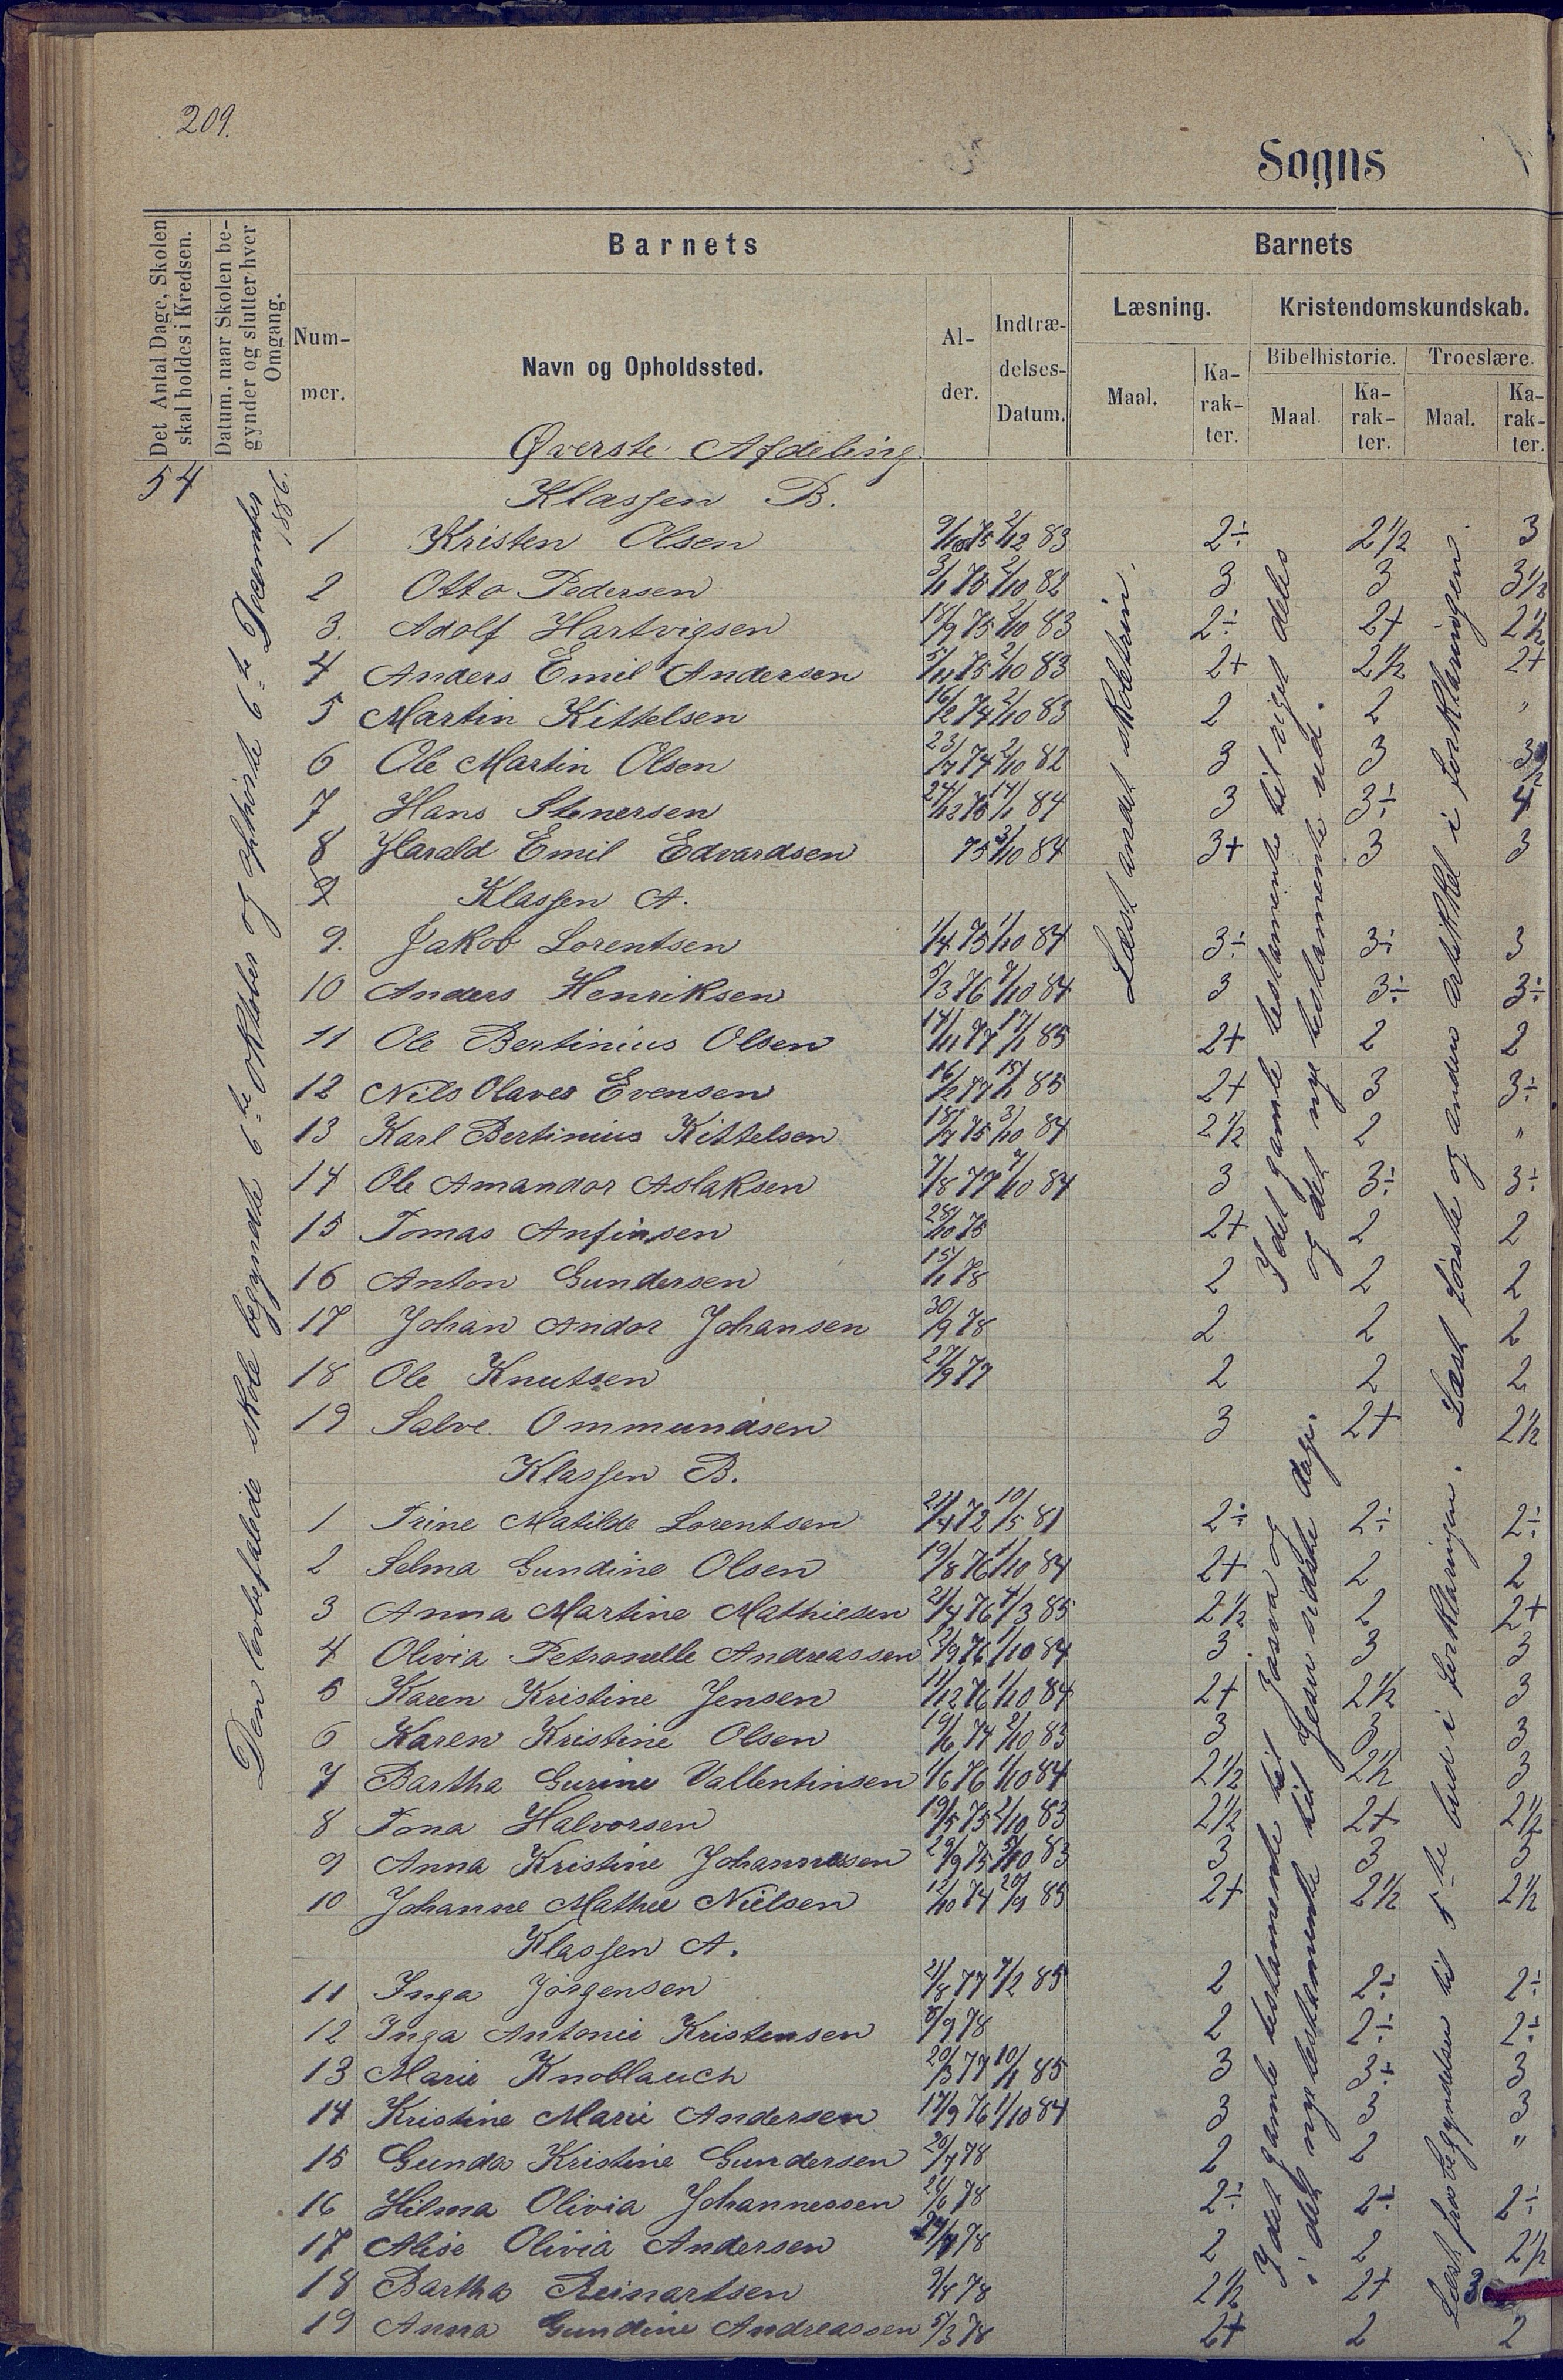 209.
Sogns
Det Antal Dage, Skolen
skal holdes i Kredsen.
Datum, naar Skolen be-
gynder og slutter hver
Omgang.
Barnets
Num-
mer.
Navn og Opholdssted.
Al-
der.
Indtræ-
delses-
Datum.
Barnets
Læsning.
Kristendomskundskab.
Maal.
Ka-
rak-
ter.
Bibelhistorie.
Troeslære.
Maal.
Ka-
rak-
ter.
Maal.
Ka-
rak-
ter.
54
Den lovbefalede skole begyndte 6te Oktober og ophørte 6te December
1886.
Øverste Afdeling
Klassen B.
1 Kristen Olsen 9/10 75 2/12 83 2÷ 2 1/2 3
2 Otto Pedersen 3/1 75 2/10 82 3 3 3 1/2
3. Adolf Hartvigsen 18/9 75 2/10 83 2÷ 2+ 2 1/2
4 Anders Emil Andersen 5/11 75 2/10 83 2+ 2 1/2 2+
5 Martin Kittelsen 16/12 74 2/10 83 2 2 "
6 Ole Martin Olsen 23/7 74 2/10 82 3 3 3 1/2
7 Hans Stenersen 24/12 75 14/1 84 3 3÷ 4
8 Harald Emil Edvardsen 75 3/10 84 3+ 3 3
9 Klassen A.
9. Jakob Lorentsen 1/4 75 1/10 84 3÷ 3÷ 3
10 Anders Henriksen 5/3 76 7/10 84 3 3÷ 3÷
11 Ole Bertinius Olsen 14/11 77 17/1 85 2+ 2 2
12 Nils Olaves Evensen 16/2 77 15/1 85 2+ 3 3÷
13 Karl Bertinius Kittelsen 18/7 75 3/10 84 2 1/2 2 "
14 Ole Amandor Aslaksen 7/8 77 7/10 84 3 3÷ 3÷
15 Tomas Anfinsen 28/10 75 2+ 2 2
16 Anton Gundersen 15/1 78 2 2 2
17 Johan Andor Johansen 30/9 78 2 2 2
18 Ole Knutsen 27/9 77 2 2 2
19 Salve Ommundsen 3 2+ 2 1/2
Klassen B.
1 Trine Matilde Lorentsen 21/4 72 10/5 81 2÷ 2÷ 2÷
2 Selma Gundine Olsen 19/8 76 1/10 84 2+ 2 2
3 Anna Martine Mathiesen 21/4 76 4/3 85 2 1/2 2 2+
4 Olivia Petronelle Andreassen 22/9 76 1/10 84 3 3 3
5 Karen Kristine Jensen 11/12 76 1/10 84 2+ 2 1/2 3
6 Karen Kristine Olsen 19/6 74 2/10 83 3 3 3
7 Bartha Gurine Vallentinsen 1/6 76 1/10 84 2 1/2 2 1/2 3
8 Tona Halvorsen 19/5 75 2/10 83 2 1/2 2+ 2 1/2
9 Anna Kristine Johannesen 29/9 75 5/10 83 3 3 3
10 Johanne Mathee Nielsen 12/10 74 20/9 83 2+ 2 1/2 2 1/2
Klassen A.
11 Inga Jørgensen 21/8 77 7/2 85 2 2÷ 2÷
12 Inga Antonie Kristensen 8/9 78 2 2÷ 2÷
13 Marie Knoblauch 20/3 77 10/1 85 3 3÷ 3
14 Kristine Marie Andersen 17/9 76 1/10 84 3 3 3
15 Gunda Kristine Gundersen 20/7 78 2 2 "
16 Hilma Olivia Johannessen 24/6 78 2÷ 2÷ 2÷
17 Alise Olivia Andersen 78 2 2 2 1/2
18 Bartha Reinartsen 9/8 78 2 1/2 2+ 3
19 Anna Gundine Andreassen 5/3 78 2+ 2 2
Læst andet skoletrin.
I det gamle testamente til riget deles
og det nye testamente ud.
Læst første og anden artikkel i forklaringen.
I det gamle testamente til Josva og
i det nye testamente til Jesu sidste dage.
Læst fra begyndelsen til 5te bud i forklaringen.